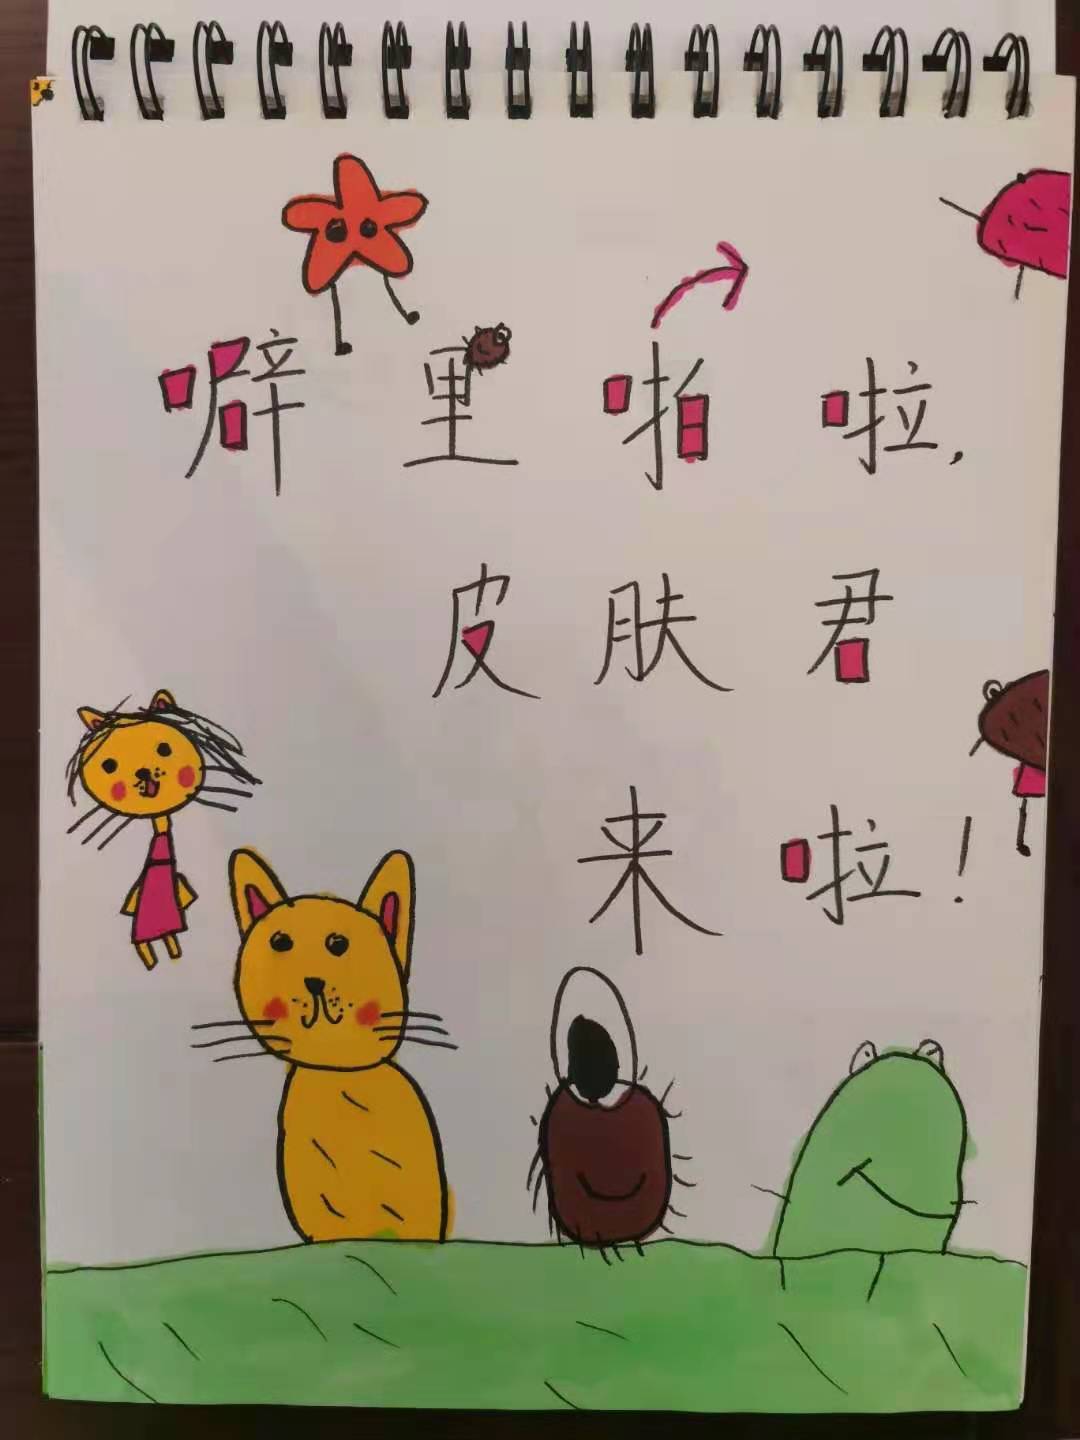 噼里啪啦,
皮肤君
来啦!